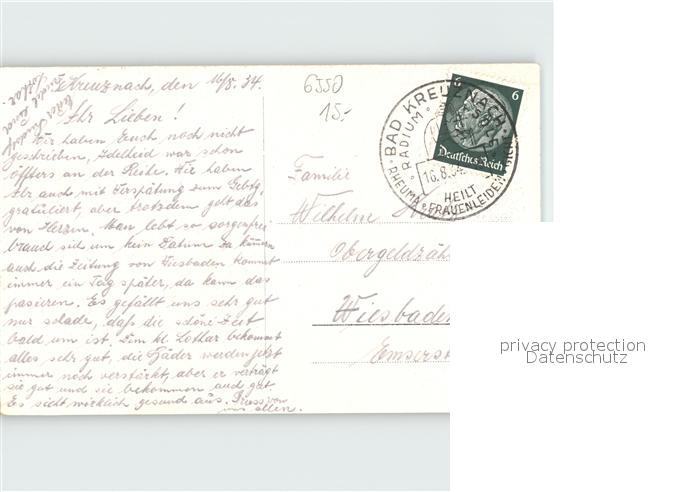 Kreuznach, den 16/8. 34.
Ihr Lieben!
Wir haben Euch noch nicht
geschrieben, Adelheid war schon
öfters an der Reihe. Wir haben
Abz auch mit Verspätung zum Gebtg.
gratuliert, aber trotzdem geht das
von Herzen. Man lebt so sorgenfrei
brauch sich um kein Datum zu kümern
auch die Zeitung von Wiesbaden kommt
immer ein Tag später, da kann das
pasieren. Es gefällt uns sehr gut
nur schade, daß die schöne Zeit
bald um ist. Dem kl. Lothar bekommt
alles sehr gut, die Bäder werden jetzt
immer noch verstärkt, aber er verträgt
sie gut und sie bekommen auch gut
Es sieht wirklich gesund aus. Gruss von
uns allen.
6550
15.-
BAD KREUZNACH
RADIUM
16.8.34
HEILT
RHEUMA FRAUENLEIDEN
6
Deutsches Reich
Familie
Wilhelm
Obergeldzäh
Wiesbaden
Emserst
privacy protection
Datenschutz